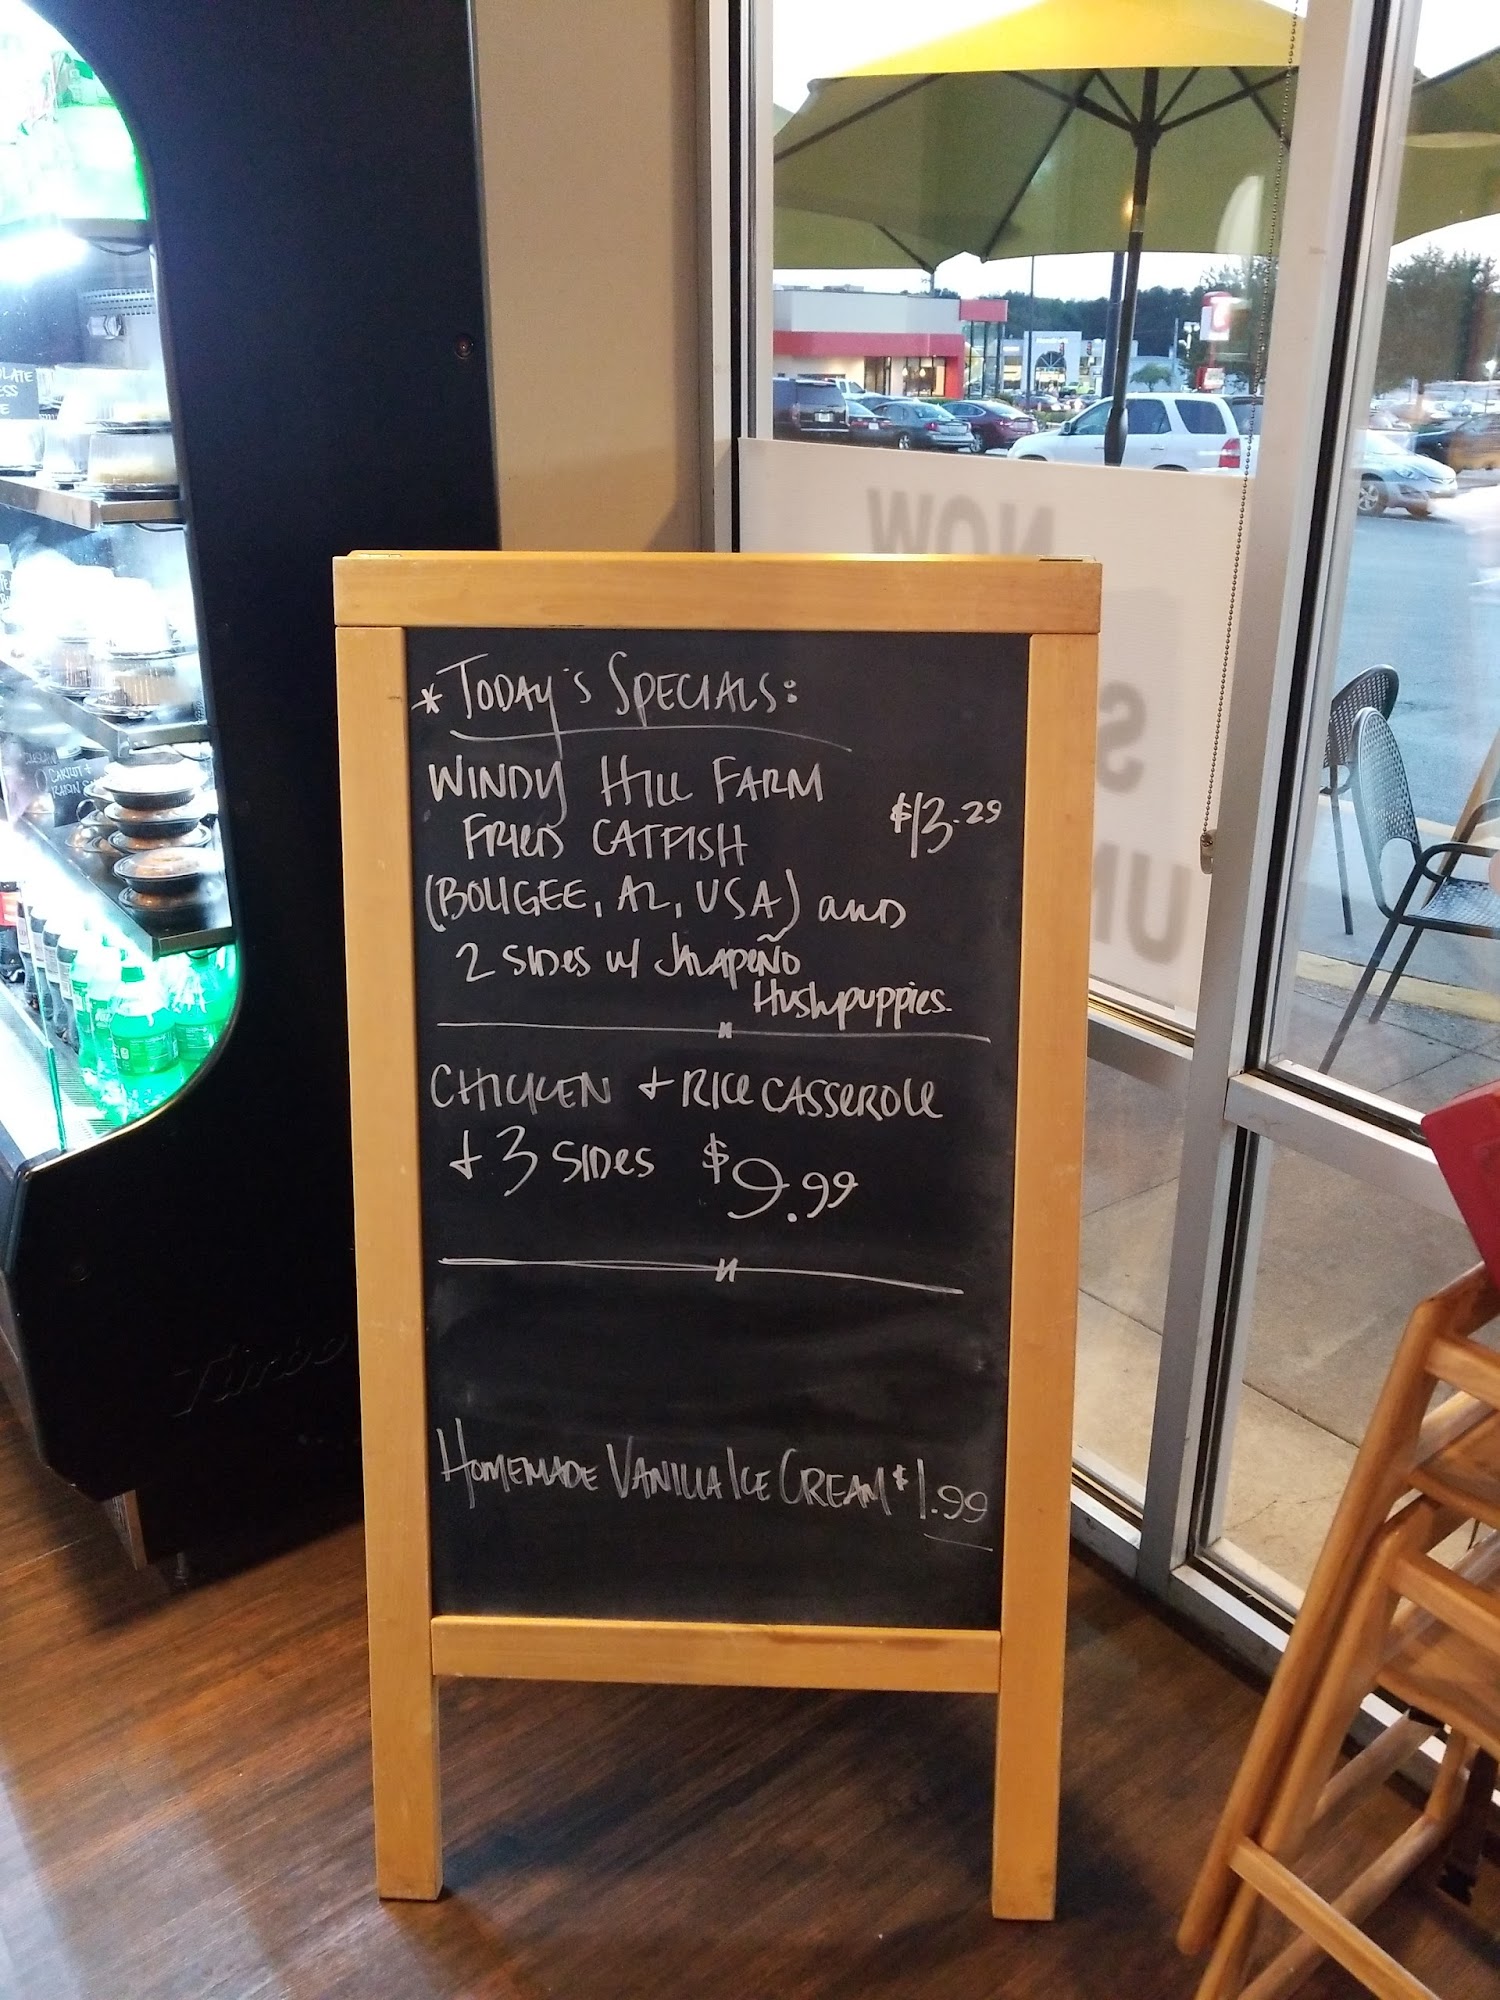 * Today's Specials:
Windy Hill Farm
Fried Catfish $13.29
(Boligee, AL, USA) and
2 sides w/ Jalapeño
Hushpuppies.
Chicken + Rice Casserole
+ 3 sides $9.99
Homemade Vanilla Ice Cream $1.99
NOW
S
UN